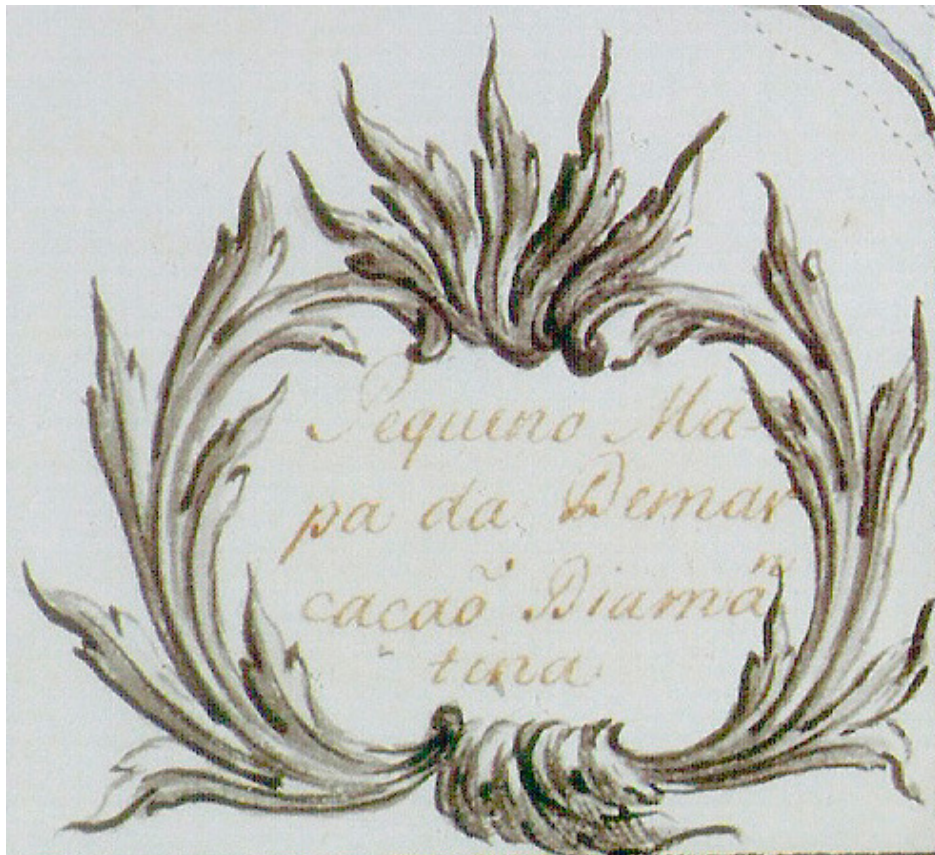 Pequeno Ma-
pa da Demar
cacaõ Diaman
tina